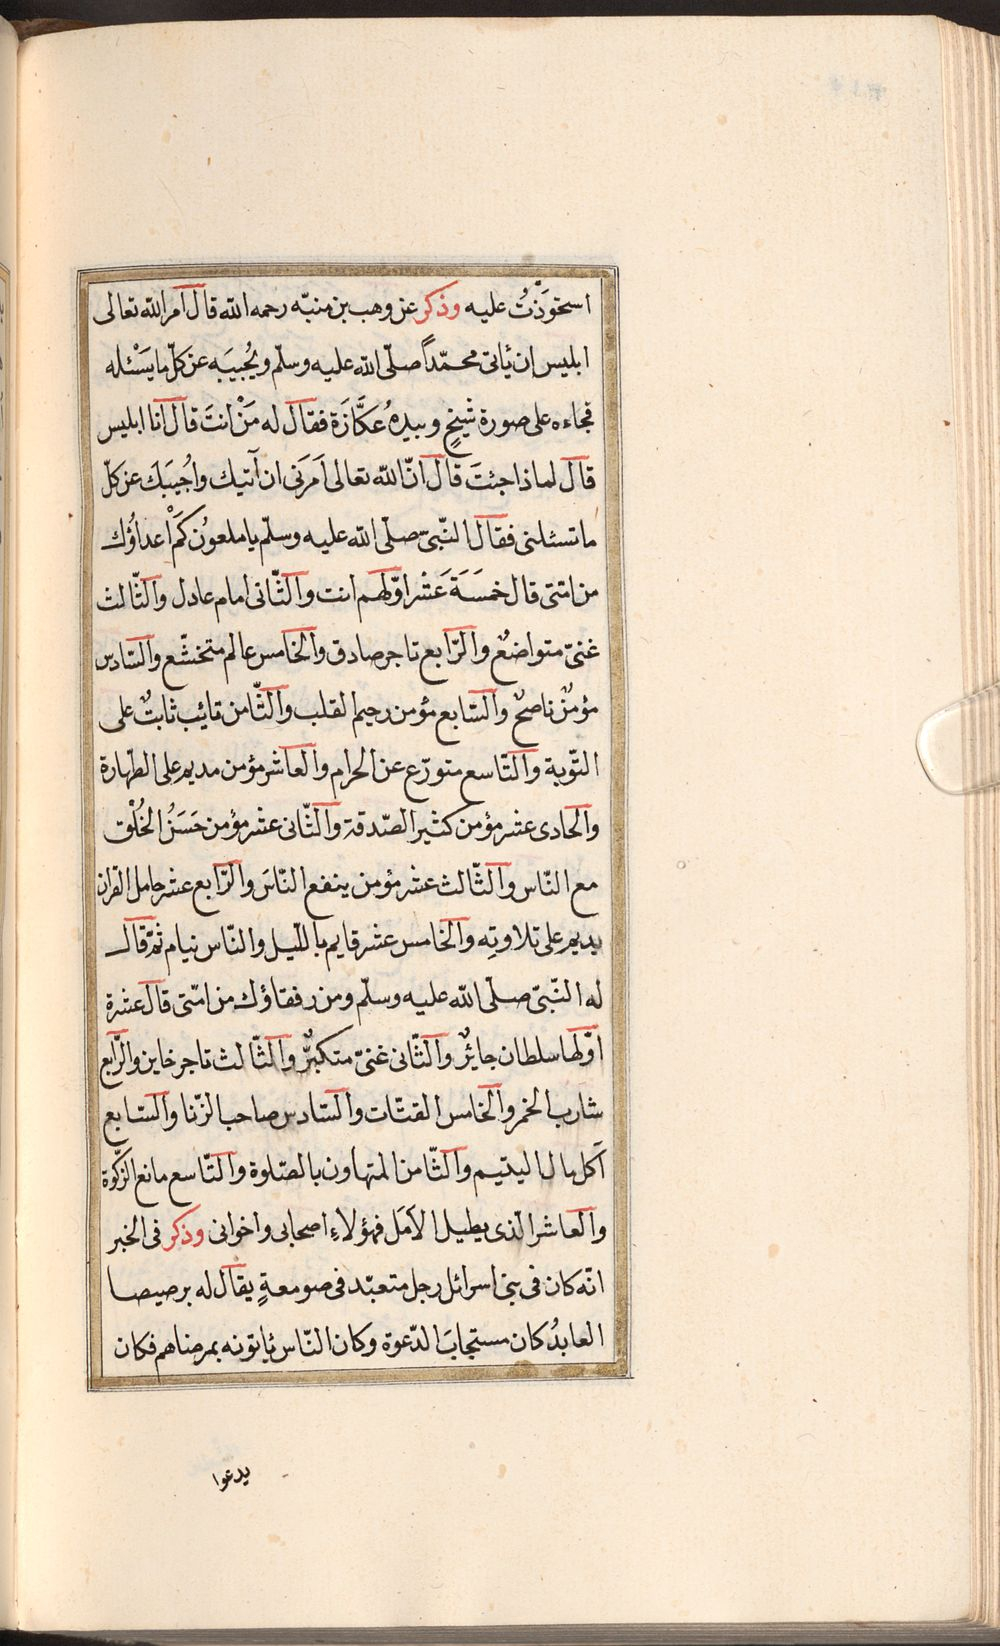 استحوَذْتُ عليه وذكر عن وهب بن منبّه رحمه الله قال امر الله تعالى
ابليس ان ياتى محمّداً صلّى الله عليه وسلّم ويُجيبَه عن كلّ ما يَسْئله
فجاءه على صورة شيخٍ وبيدِهُ عكَّازَة فقال له مَنْ انتَ قال انا ابليس
قال لماذا جئتَ قال انّ الله تعالى اَمرَنى ان آتيك واُجيبَكَ عن كلّ
ما تسئلنى فقال النّبىّ صلّى الله عليه وسلّم يا ملعوُن كَمْ اعداؤُك
من امّتى قال خمسَةَ عَشر اوّلهم انت والثّانى امام عادل والثّالث
غنىّ متواضعٌ والرّابع تاجر صادق والخامس عالم متخشّع والسّادس
مؤمنٌ ناصحٌ والسّابع مؤمن رحيم القلب والثّامن تائب ثابتٌ على
التّوبة والتّاسع متورّع عن الحرام والعاشر مؤمن مديم على الطّهارة
والحادى عشر مؤمن كثير الصّدقة والثّانى عشر مؤمن حَسَنُ الخُلْق
مع النّاس والثّالث عشر مؤمن ينفع النّاسَ والرّابع عشر حامل القران
يديم على تلاوتِه والخامس عشر قايم باللّيل والنّاس نيام ثمّ قال
له النّبىّ صلّى الله عليه وسلّم ومن رفقاؤك من امّتى قال عشرة
اوّلها سلطان جائرٌ والثّانى غنىّ متكبرٌّ والثّالث تاجر خاين والرّابع
شارب الخمر والخامس القتّات والسّادس صاحب الزّنا والسّابع
آكل مال اليتيم والثّامن المتهاون بالصّلوة والتّاسع مانع الزّكوة
والعاشر الّذى يطيل الاَمَل فهؤلاءِ اصحابى واخوانى وذكر فى الخبر
انّه كان فى بنى اسرائل رجل متعبّد فى صومعةٍ يقال له برصيصا
العابدُ كان مستجابَ الدّعوة وكان النّاس ياتونه بمرضاهم فكان
يدعوا